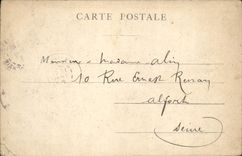 CARTE POSTALE
Monsieur & Madame Alix
10 Rue Ernest Renan
Alfort
Seine